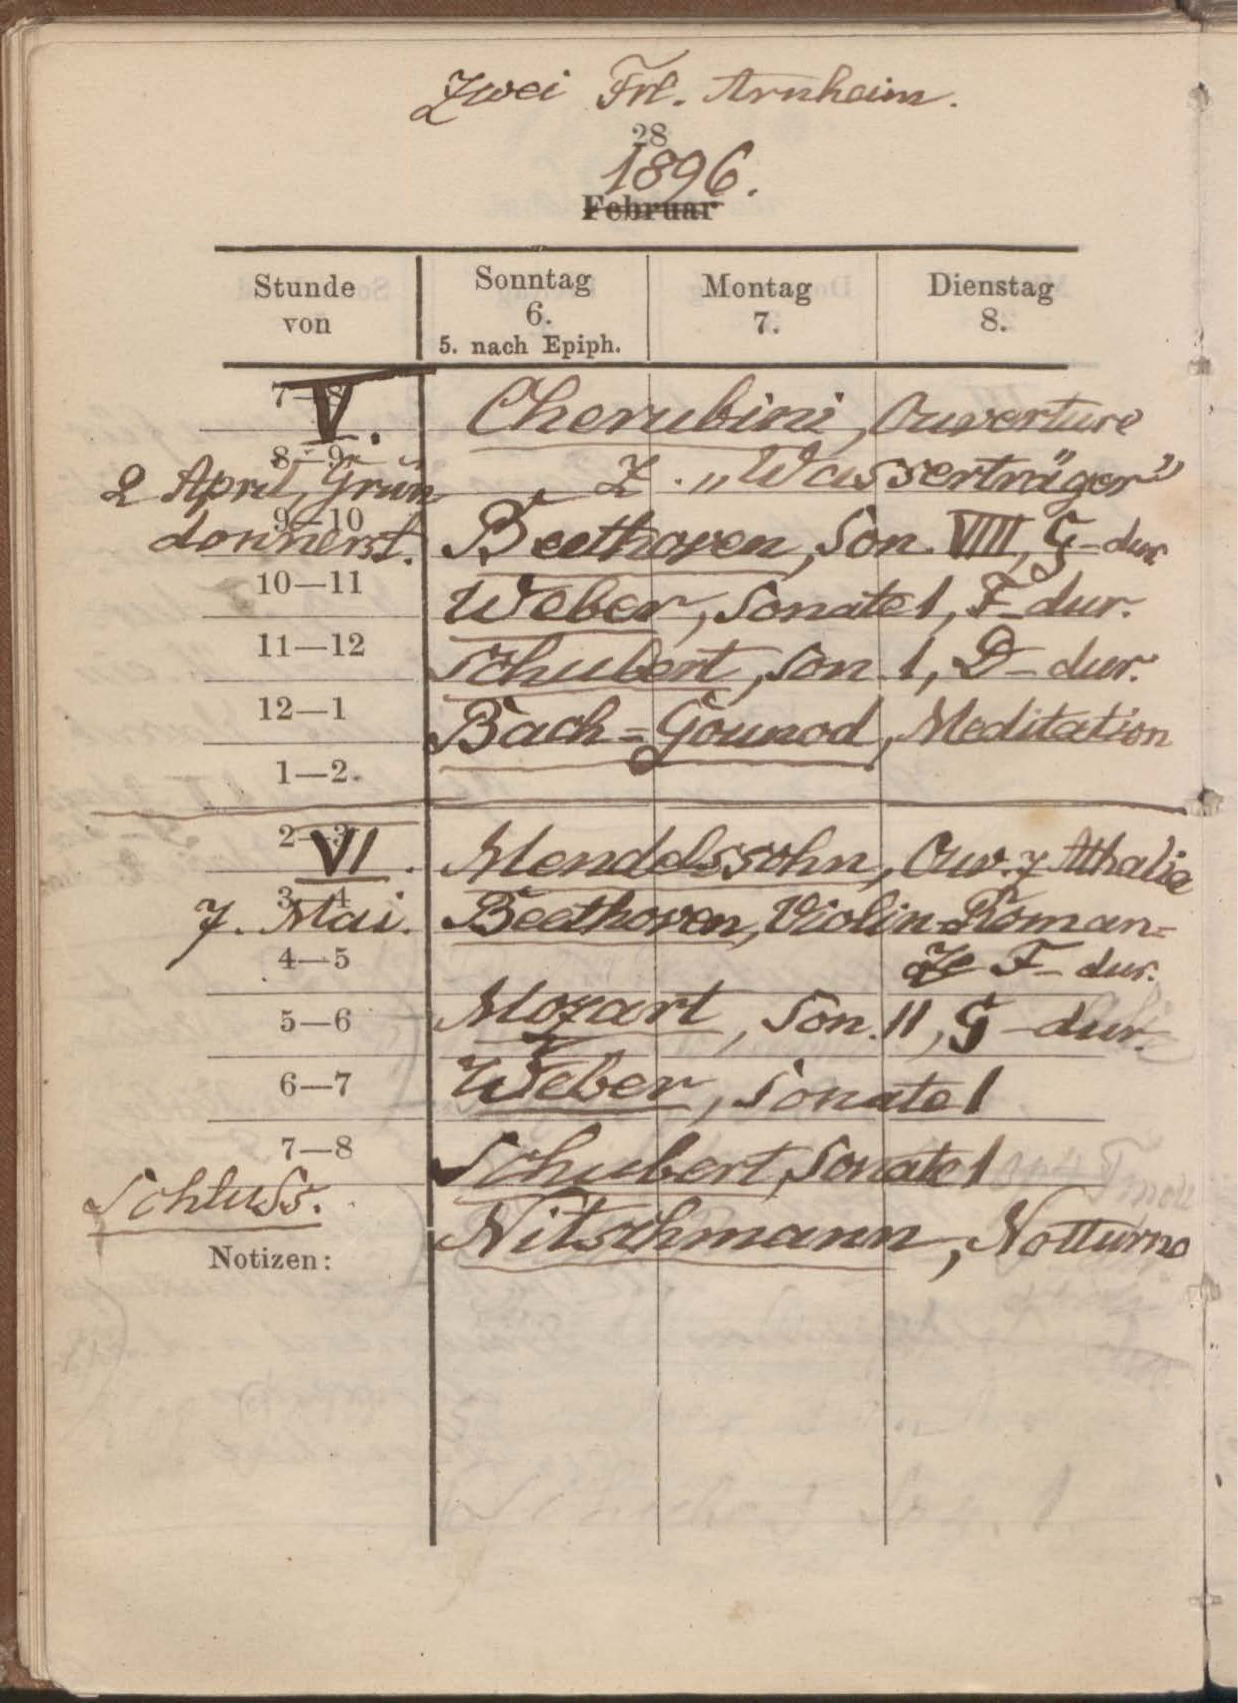 Zwei Frl. Arnheim.
28
1896.
Februar
Stunde von
Sonntag 6. 5. nach Epiph.
Montag 7.
Dienstag 8.
7—8
V.
Cherubini, Ouverture
8—9
z. „Wasserträger"
2 April, Grün
9—10
donnerst.
Beethoven, Son. VIII, G-dur
10—11
Weber, Sonate 1, F-dur.
11—12
Schubert, Son. 1, D-dur.
12—1
Bach=Gounod, Meditation
1—2.
2—3
VI.
Mendelssohn, Ouv. z Athalia
3—4
7. Mai.
Beethoven, Violin-Roman=
4—5
ze F-dur.
5—6
Mozart, Son. 11, G-dur.
6—7
Weber, Sonate 1
7—8
Schubert, Sonate 1
Schluss.
Nitschmann, Notturno
Notizen: